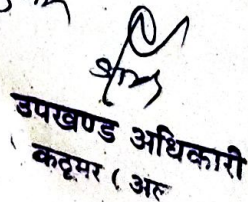 उपखण्ड अधिकारी
कठूमर ( अल